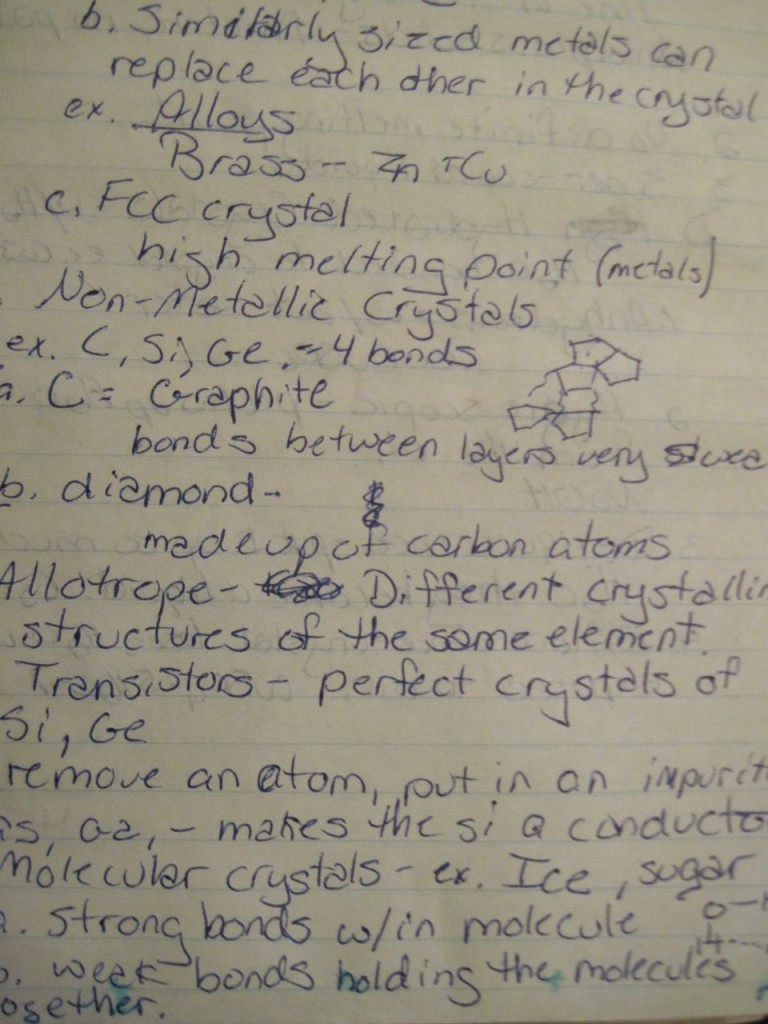 b. Similarly sized metals can
replace each other in the crystal
ex. Alloys
Brass - Zn + Cu
c. FCC crystal
high melting point (metals)
Non-Metallic Crystals
ex. C, Si, Ge. = 4 bonds
a. C = Graphite
bonds between layers very
b. diamond -
made up of carbon atoms
Allotrope - Different crystallin
structures of the same element.
Transistors - perfect crystals of
Si, Ge
remove an atom, put in an impurit
Ga, - makes the Si a conducto
Molecular crystals - ex. Ice, sugar
a. Strong bonds w/in molecule
b. weak bonds holding the molecules
ogether.